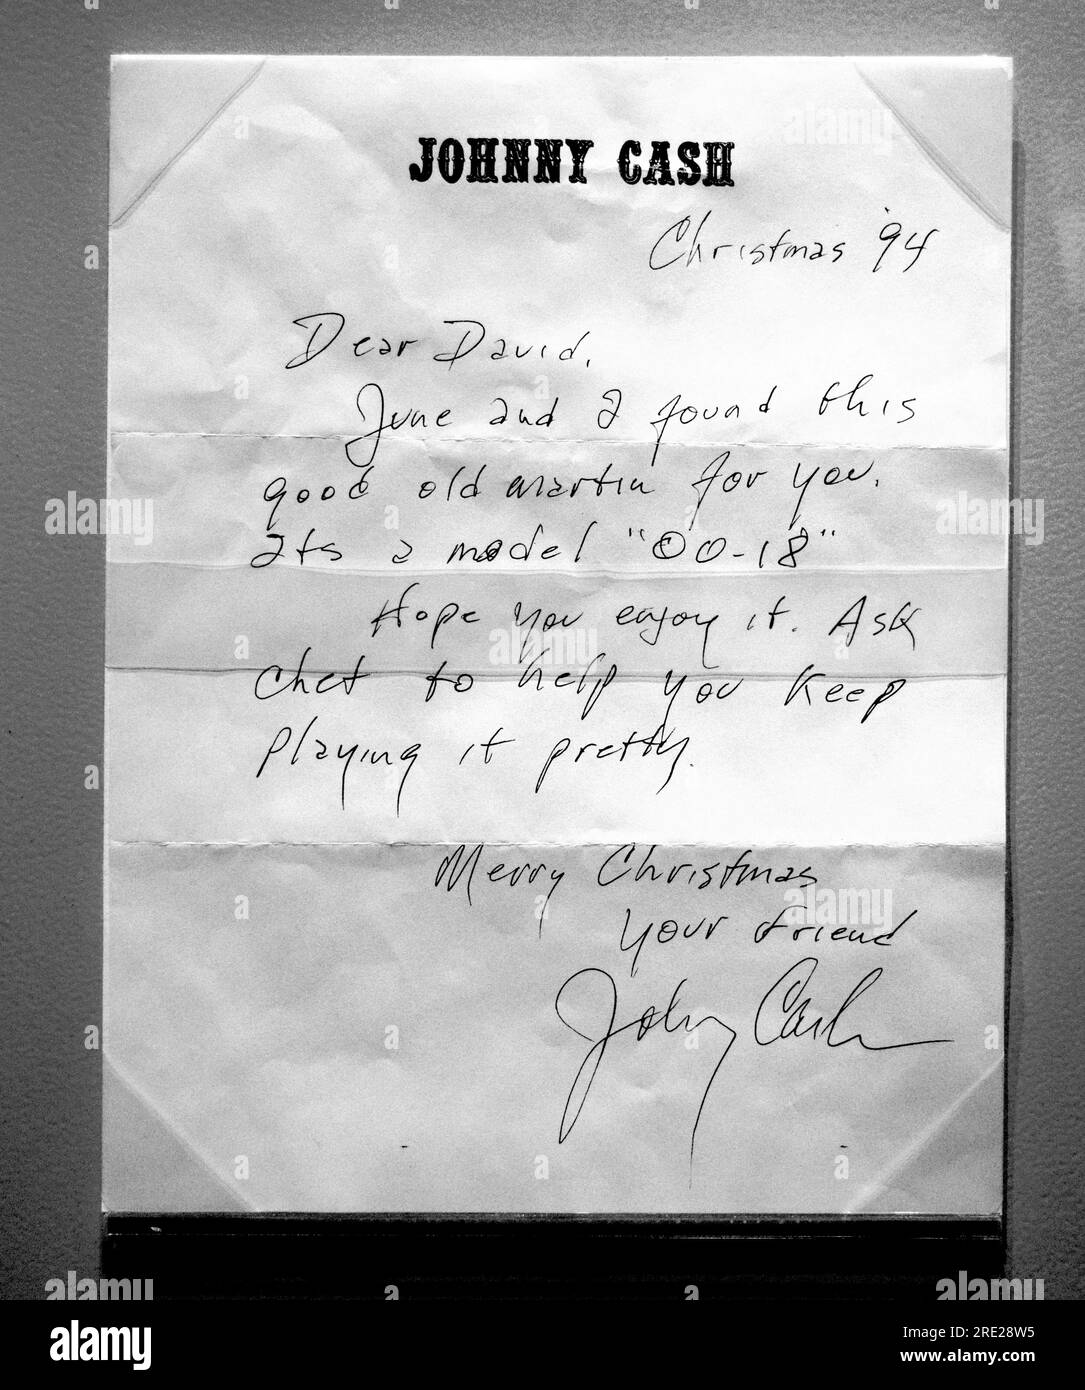 JOHNNY CASH
Christmas '94
Dear David,
June and I found this
good old martin for you.
Its a model "00-18"
Hope you enjoy it. Ask
Chet to help you keep
playing it pretty.
Merry Christmas
your friend
Johnny Cash
alamy
Image ID: 2RE28W5
www.alamy.com